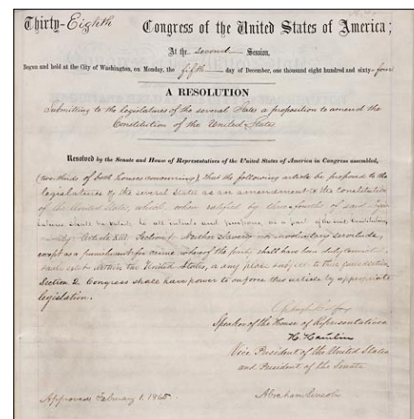 Thirty-Eighth Congress of the United States of America;
At the second Session,
Begun and held at the City of Washington, on Monday, the fifth day of December, one thousand eight hundred and sixty-four
A RESOLUTION
Submitting to the legislatures of the several States a proposition to amend the
Constitution of the United States
Resolved by the Senate and House of Representatives of the United States of America in Congress assembled,
(two-thirds of both houses concurring), that the following article be proposed to the
legislatures of the several States as an amendment to the constitution
of the United States, which, when ratified by three-fourths of said
shall be valid, to all intents and purposes, as a part of the said constitution
Article XIII. Section 1. Neither slavery nor involuntary servitude,
except as a punishment for crime whereof the party shall have been duly convicted,
shall exist within the United States, or any place subject to their jurisdiction
Section 2. Congress shall have power to enforce this article by appropriate
legislation.
Speaker of the House of Representatives
H. Hamlin
Vice President of the United States
and President of the Senate
Approved February 1, 1865
Abraham Lincoln